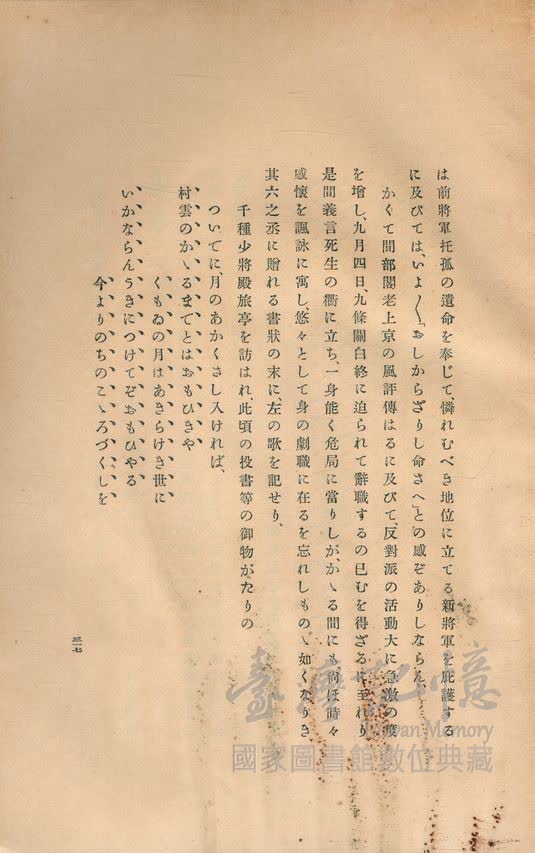 は前將軍托孤の遺命を奉じて、憐れむべき地位に立てる新將軍を庇護する
に及びては、いよ〱「おしからざりし命さへ」との感ぞありしならん、
かくて間部閣老上京の風評傳はるに及びて、反對派の活動大に急激の度
を增し、九月四日、九條關白終に迫られて辭職するの已むを得ざるに至れり
是間義言死生の衢に立ち、一身能く危局に當りしが、かゝる間にも、尙ほ時々
感懷を諷詠に寓し、悠々として身の劇職に在るを忘れしものゝ如くなりき
其六之丞に贈れる書狀の末に、左の歌を記せり、
千種少將殿旅亭を訪はれ、此頃の投書等の御物がたりの
ついでに月のあかくさし入ければ、
村雲のかゝるまでとはおもひきや
くもゐの月はあきらけき世に
いかならんうきにつけてぞおもひやる
今よりのちのこゝろづくしを
三一七
臺灣記憶
Taiwan Memory
國家圖書館數位典藏